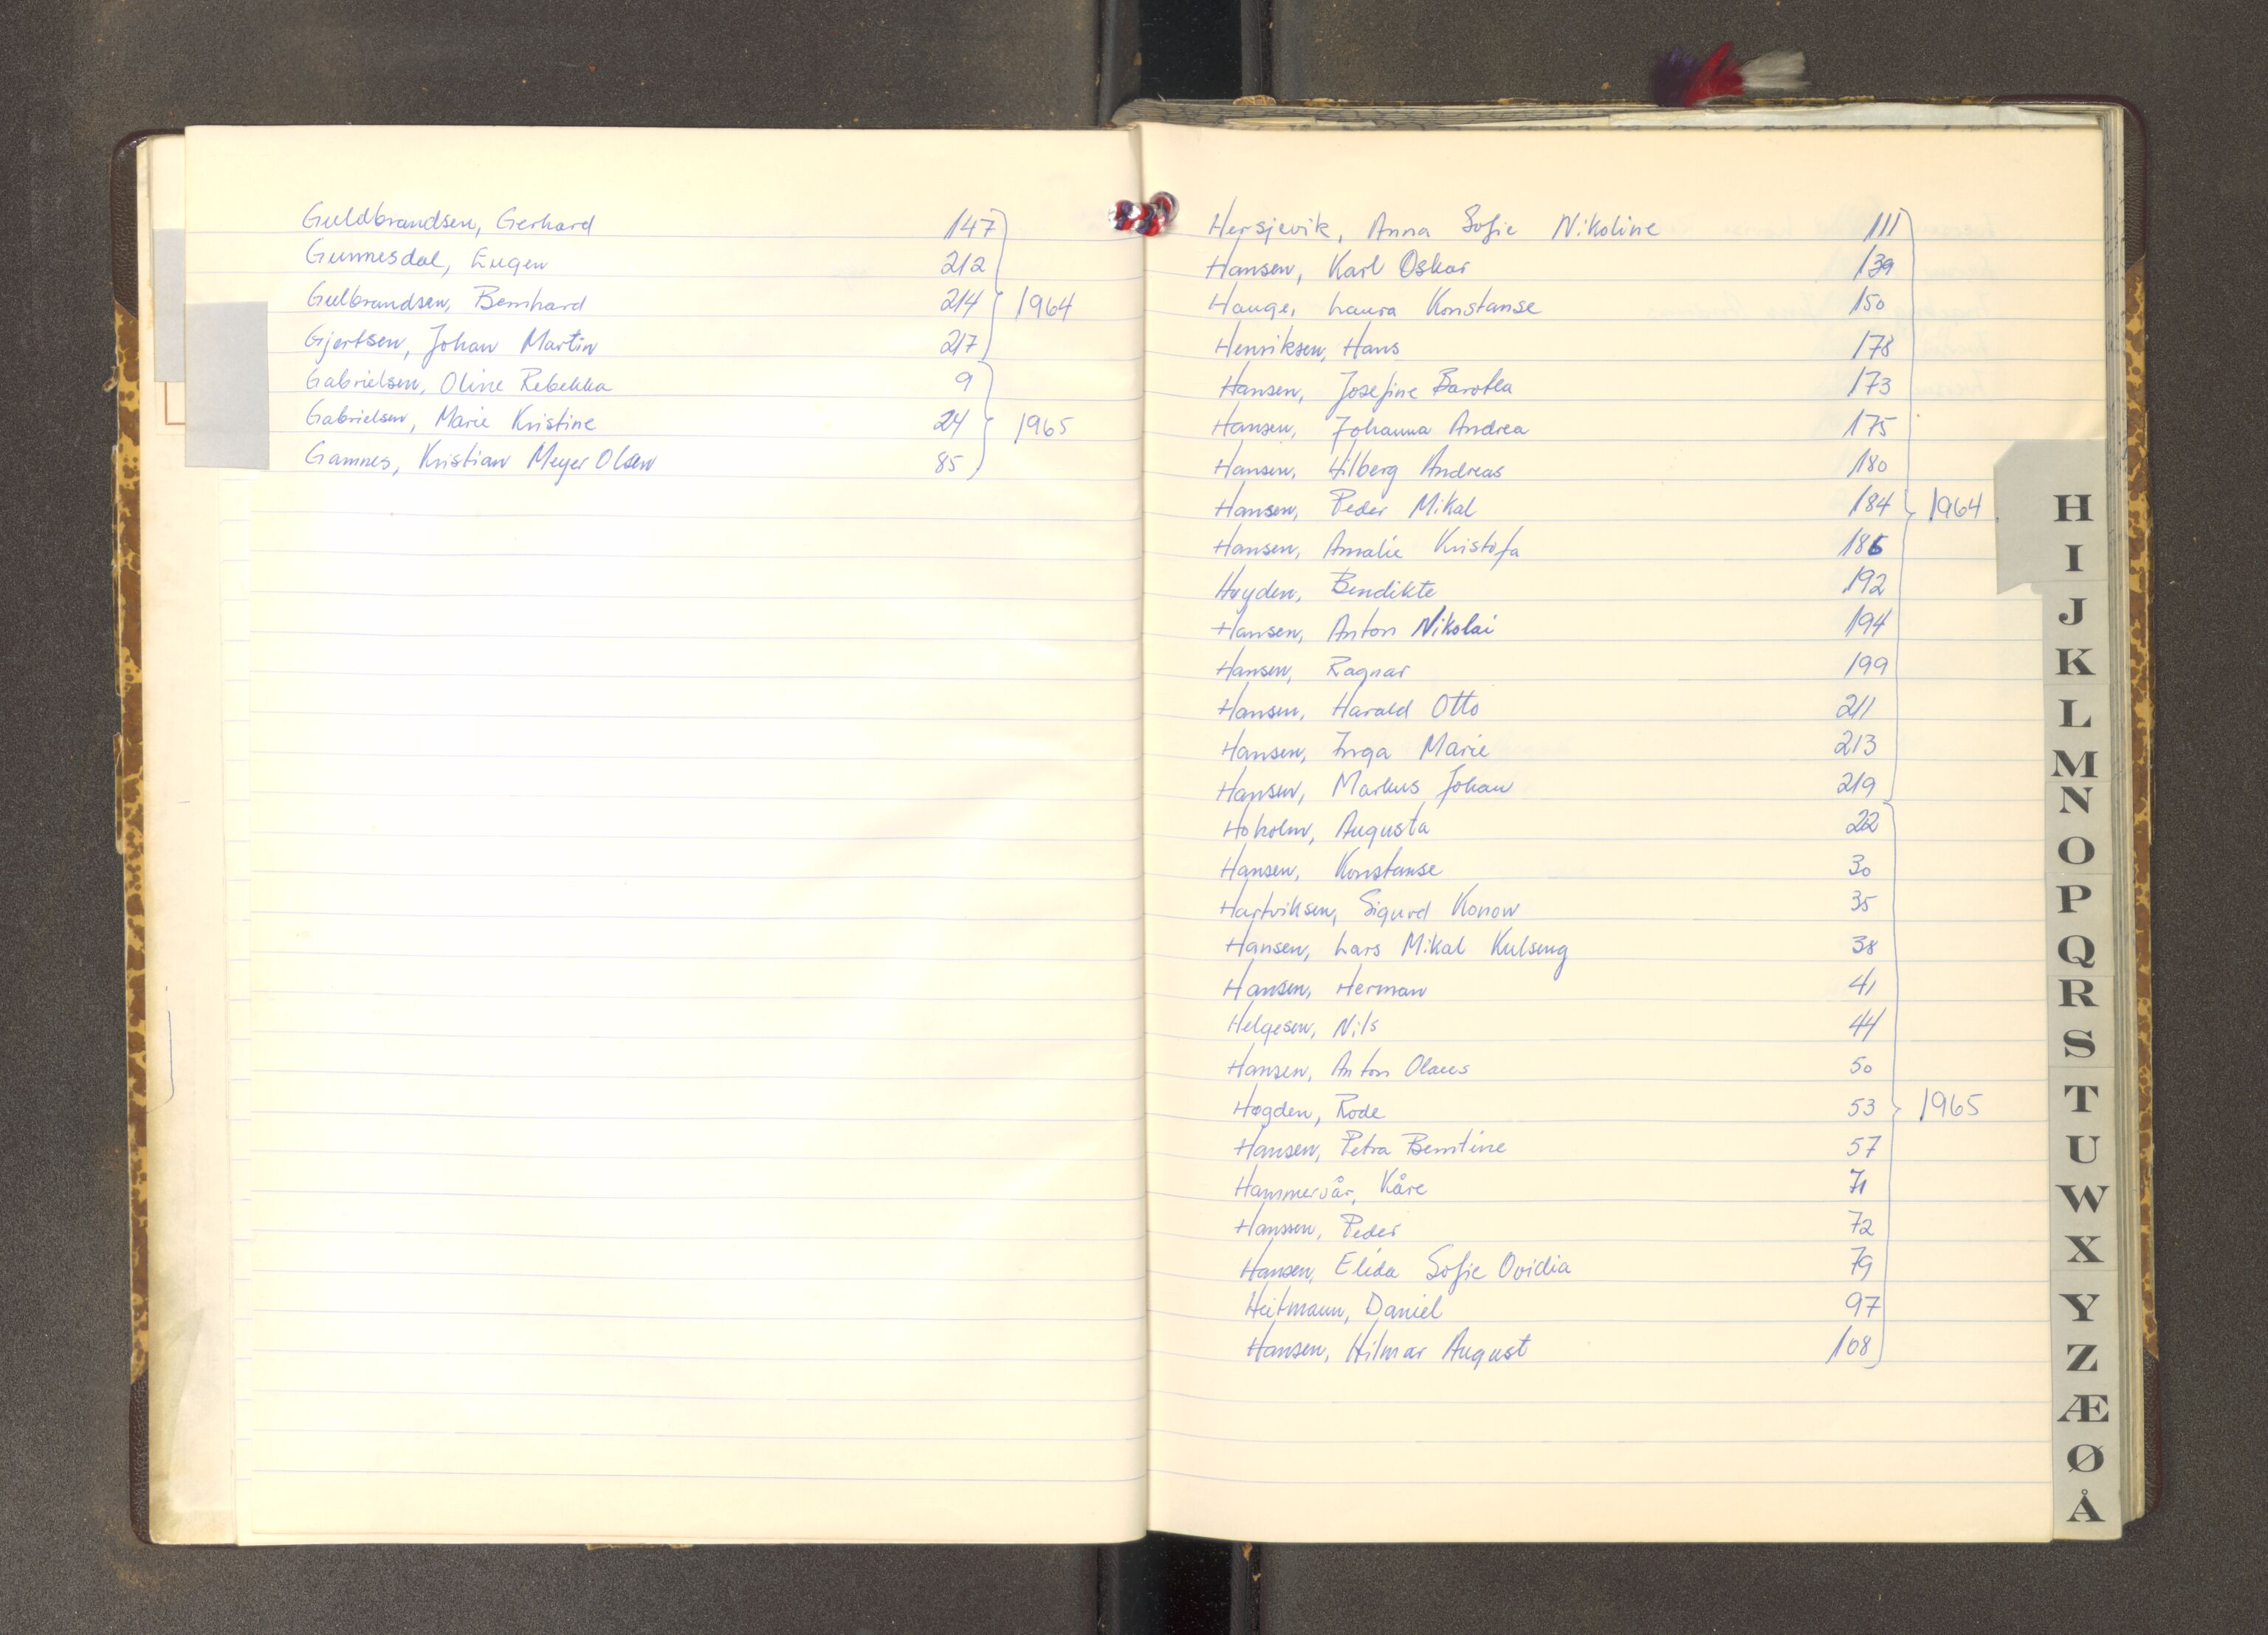 Guldbrandsen, Gerhard 147
Gunnesdal, Eugen 212
Gulbrandsen, Bernhard 214 1964
Gjertsen, Johan Martin 217
Gabrielsen, Oline Rebekka 9
Gabrielsen, Marie Kristine 24 1965
Gamnes, Kristian Meyer Olsen 85
Hersjevik, Anna Sofie Nikoline 111
Hansen, Karl Oskar 139
Hauge, Laura Konstanse 150
Henriksen, Hans 178
Hansen, Josefine Barotea 173
Hansen, Johanna Andrea 175
Hansen, Hilberg Andreas 180
Hansen, Peder Mikal 184 1964
Hansen, Amalie Kristofa 186
Hvyden, Bendikte 192
Hansen, Anton Nikolai 194
Hansen, Ragnar 199
Hansen, Harald Otto 211
Hansen, Inga Marie 213
Hansen, Markus Johan 219
Hoholm, Augusta 22
Hansen, Konstanse 30
Hartviksen, Sigurd Konow 35
Hansen, Lars Mikal Kulseng 38
Hansen, Herman 41
Helgesen, Nils 44
Hansen, Anton Olaus 50
Hogden, Rode 53 1965
Hansen, Petra Berntine 57
Hammervår, Kåre 71
Hanssen, Peder 72
Hansen, Elida Sofie Ovidia 79
Heitmann, Daniel 97
Hansen, Hilmar August 108
H
I
J
K
L
M
N
O
P
Q
R
S
T
U
W
X
Y
Z
Æ
Ø
Å